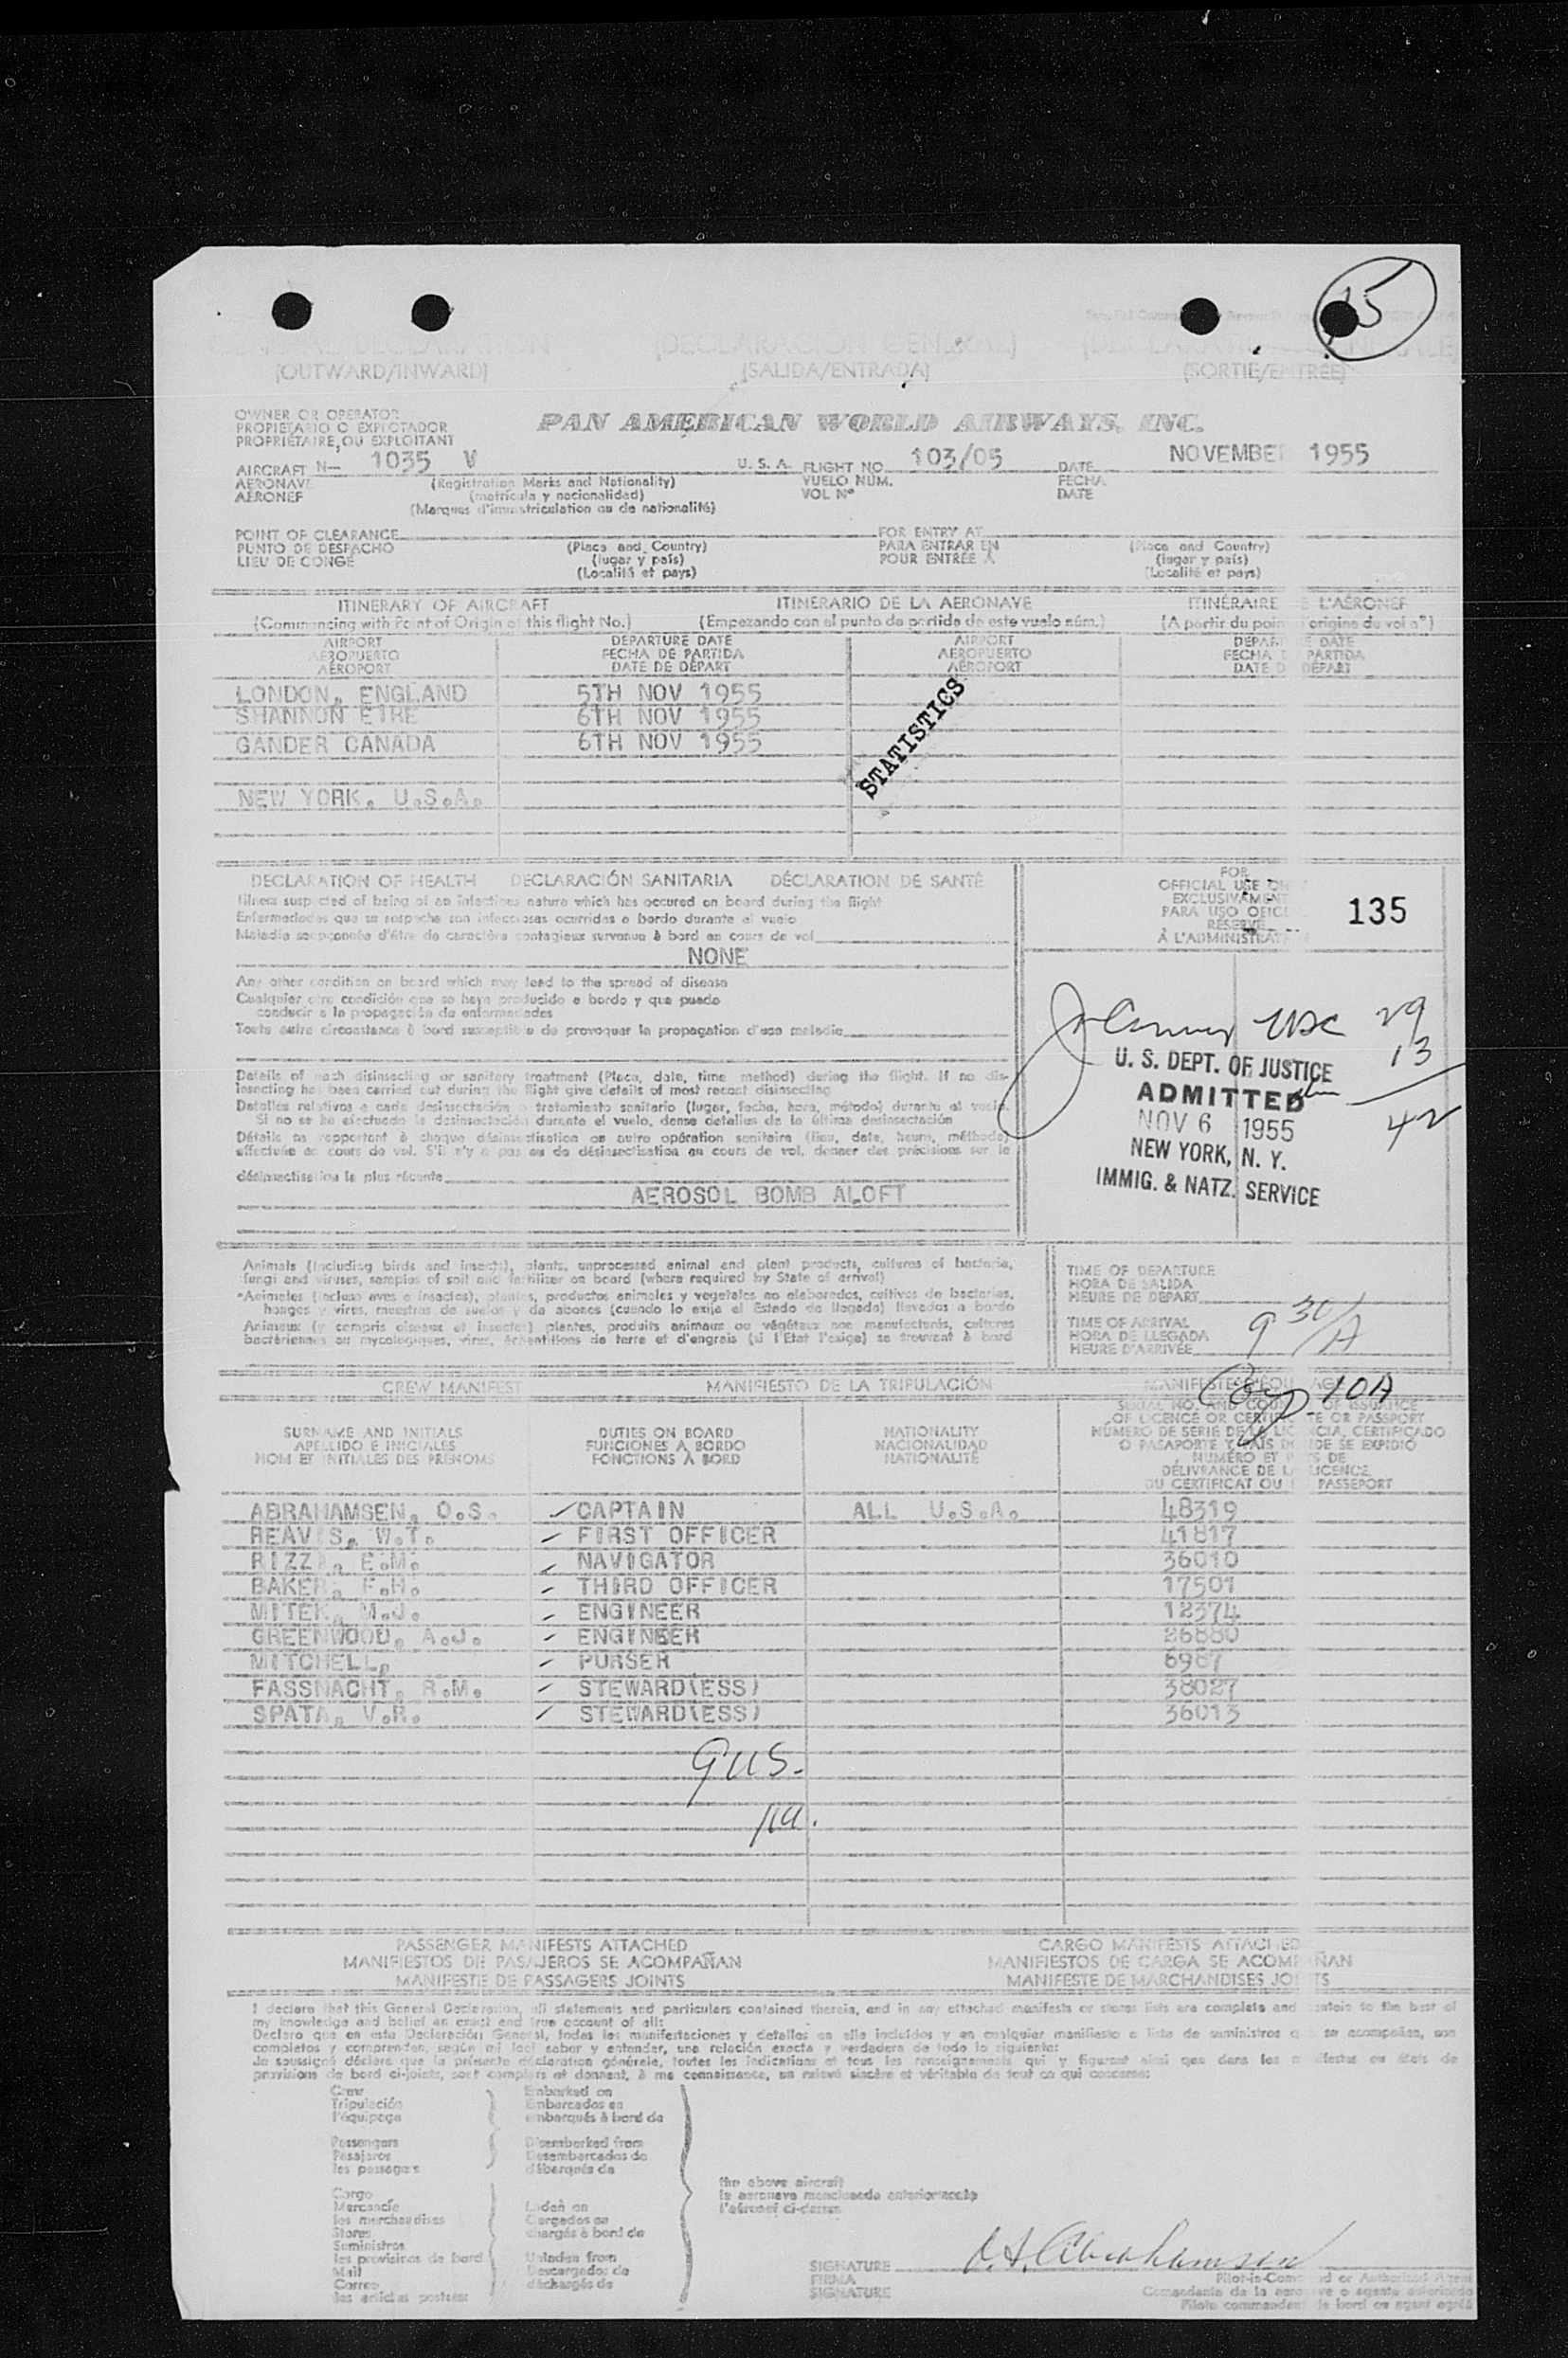 15
GENERAL DECLARATION (DECLARACIÓN GENERAL)
(OUTWARD/INWARD) (SALIDA/ENTRADA) (SORTIE/ENTRÉE)
OWNER OR OPERATOR
PROPIETARIO O EXPLOTADOR
PROPRIÉTAIRE, OU EXPLOITANT
PAN AMERICAN WORLD AIRWAYS, INC.
AIRCRAFT N— 1035 V U. S. A. FLIGHT NO. 103/05 DATE NOVEMBE 1955
AERONAVE (Registration Marks and Nationality) VUELO NÚM. FECHA
AÉRONEF (matrícula y nacionalidad) VOL Nº DATE
(Marques d'immatriculation ou de nationalité)
POINT OF CLEARANCE FOR ENTRY AT
PUNTO DE DESPACHO (Place and Country) PARA ENTRAR EN (Place and Country)
LIEU DE CONGÉ (lugar y país) POUR ENTRÉE À (lugar y país)
(Localité et pays) (Localité et pays)
ITINERARY OF AIRCRAFT ITINERARIO DE LA AERONAVE ITINÉRAIRE E L'AÉRONEF
(Commencing with Point of Origin of this flight No.) (Empezando con el punto de partida de este vuelo núm.) (A partir du poin origine du vol nº)
AIRPORT DEPARTURE DATE AIRPORT DEPAR E DATE
AEROPUERTO FECHA DE PARTIDA AEROPUERTO FECHA D PARTIDA
AÉROPORT DATE DE DÉPART AÉROPORT DATE D DÉPART
LONDON, ENGLAND 5TH NOV 1955
SHANNON EIRE 6TH NOV 1955
GANDER CANADA 6TH NOV 1955
STATISTICS
NEW YORK, U.S.A.
DECLARATION OF HEALTH DECLARACIÓN SANITARIA DÉCLARATION DE SANTÉ
Illness suspected of being of an infectious nature which has occured on board during the flight
Enfermedades que se sospecha son infecciosas ocurridas a bordo durante el vuelo
Maladie soupçonnée d'être de caractère contagieux survenue à bord en cours de vol
NONE
Any other condition on board which may lead to the spread of disease
Cualquier otra condición que se haya producido a bordo y que puede
conducir a la propagación de enfermedades
Toute autre circonstance à bord susceptible de provoquer la propagation d'une maladie
Details of each disinsecting or sanitary treatment (Place, date, time method) during the flight. If no dis-
insecting has been carried out during the flight give details of most recent disinsecting
Detalles relativos a cada desinsectación o tratamiento sanitario (lugar, fecha, hora, método) durante el vuelo.
Si no se ha efectuado la desinsectación durante el vuelo, dense detalles de la última desinsectación
Détails se rapportant à chaque désinsectisation ou autre opération sanitaire (lieu, date, heure, méthode)
effectuée au cours de vol. S'il n'y a pas eu de désinsectisation au cours de vol, donner des précisions sur la
désinsectisation la plus récente
AEROSOL BOMB ALOFT
FOR
OFFICIAL USE ON
EXCLUSIVAMEN
PARA USO OFIC
RÉSERVÉ
À L'ADMINISTRAT
135
29
13
42
U. S. DEPT. OF JUSTICE
ADMITTED
NOV 6 1955
NEW YORK, N. Y.
IMMIG. & NATZ. SERVICE
Animals (including birds and insects), plants, unprocessed animal and plant products, cultures of bacteria,
fungi and viruses, samples of soil and fertilizer on board (where required by State of arrival)
Animales (incluso aves e insectos), plantas, productos animales y vegetales no elaborados, cultivos de bacterias,
hongos y virus, muestras de suelos y de abonos (cuando lo exija el Estado de llegada) llevados a bordo
Animaux (y compris oiseaux et insectes) plantes, produits animaux ou végétaux non manufacturés, cultures
bactériennes ou mycologiques, virus, échantillons de terre et d'engrais (si l'Etat l'exige) se trouvant à bord
TIME OF DEPARTURE
HORA DE SALIDA
HEURE DE DÉPART
TIME OF ARRIVAL
HORA DE LLEGADA
HEURE D'ARRIVÉE
9 30/A
10A
CREW MANIFEST MANIFIESTO DE LA TRIPULACIÓN
SURNAME AND INITIALS
APELLIDO E INICIALES
NOM ET INITIALES DES PRÉNOMS
DUTIES ON BOARD
FUNCIONES A BORDO
FONCTIONS À BORD
NATIONALITY
NACIONALIDAD
NATIONALITÉ
SERIAL NO. AND COUN OF ISSUANCE
OF LICENCE OR CERTIF TE OR PASSPORT
NÚMERO DE SERIE DE LA LIC NCIA, CERTIFICADO
O PASAPORTE Y PAÍS D DE SE EXPIDIÓ
NUMÉRO ET P S DE
DÉLIVRANCE DE L LICENCE,
DU CERTIFICAT OU PASSEPORT
ABRAHAMSEN, O.S. CAPTAIN ALL U.S.A. 48319
REAVIS, W.T. FIRST OFFICER 41817
RIZZ , E.M. NAVIGATOR 36010
BAKER, F.H. THIRD OFFICER 17501
MITEK, M.J. ENGINEER 12374
GREENWOOD, A.J. ENGINEER 26880
MITCHELL, PURSER 6987
FASSNACHT, R.M. STEWARD(ESS) 38027
SPATA, V.R. STEWARD(ESS) 36013
9 US.
PASSENGER MANIFESTS ATTACHED CARGO MANIFESTS ATTACHED
MANIFIESTOS DE PASAJEROS SE ACOMPAÑAN MANIFIESTOS DE CARGA SE ACOMPAÑAN
MANIFESTE DE PASSAGERS JOINTS MANIFESTE DE MARCHANDISES JOINTS
I declare that this General Declaration, all statements and particulars contained therein, and in any attached manifests or stores lists are complete and to the best of
my knowledge and belief an exact and true account of all:
Declaro que en esta Declaración General, todas las manifestaciones y detalles en ella incluidos y en cualquier manifiesto o lista de suministros q se acompañan, son
completos y comprenden, según mi leal saber y entender, una relación exacta y verdadera de todo lo siguiente:
Je soussigné déclare que la présente déclaration générale, toutes les indications et tous les renseignements qui y figurent ainsi que dans les manifestes ou états de
provisions de bord ci-joints, sont complets et donnent, à ma connaissance, un relevé sincère et véritable de tout ce qui concerne:
Crew Embarked on
Tripulación Embarcados en
l'équipage embarqués à bord de
Passengers Disembarked from
Pasajeros Desembarcados de
les passagers débarqués de
the above aircraft
la aeronave mencionada anteriormente
l'aéronef ci-dessus
Cargo
Mercancía Laden on
les marchandises Cargados en
Stores chargés à bord de
Suministros
les provisions de bord Unladen from
Mail Descargados de
Correo déchargés de
les articles postaux
SIGNATURE O.S. Abrahamsen
FIRMA
SIGNATURE
Pilot-in-Com d or Authorized Agent
Comandante de la aero ve o agente autorizado
Pilote commandan de bord ou agent agréé